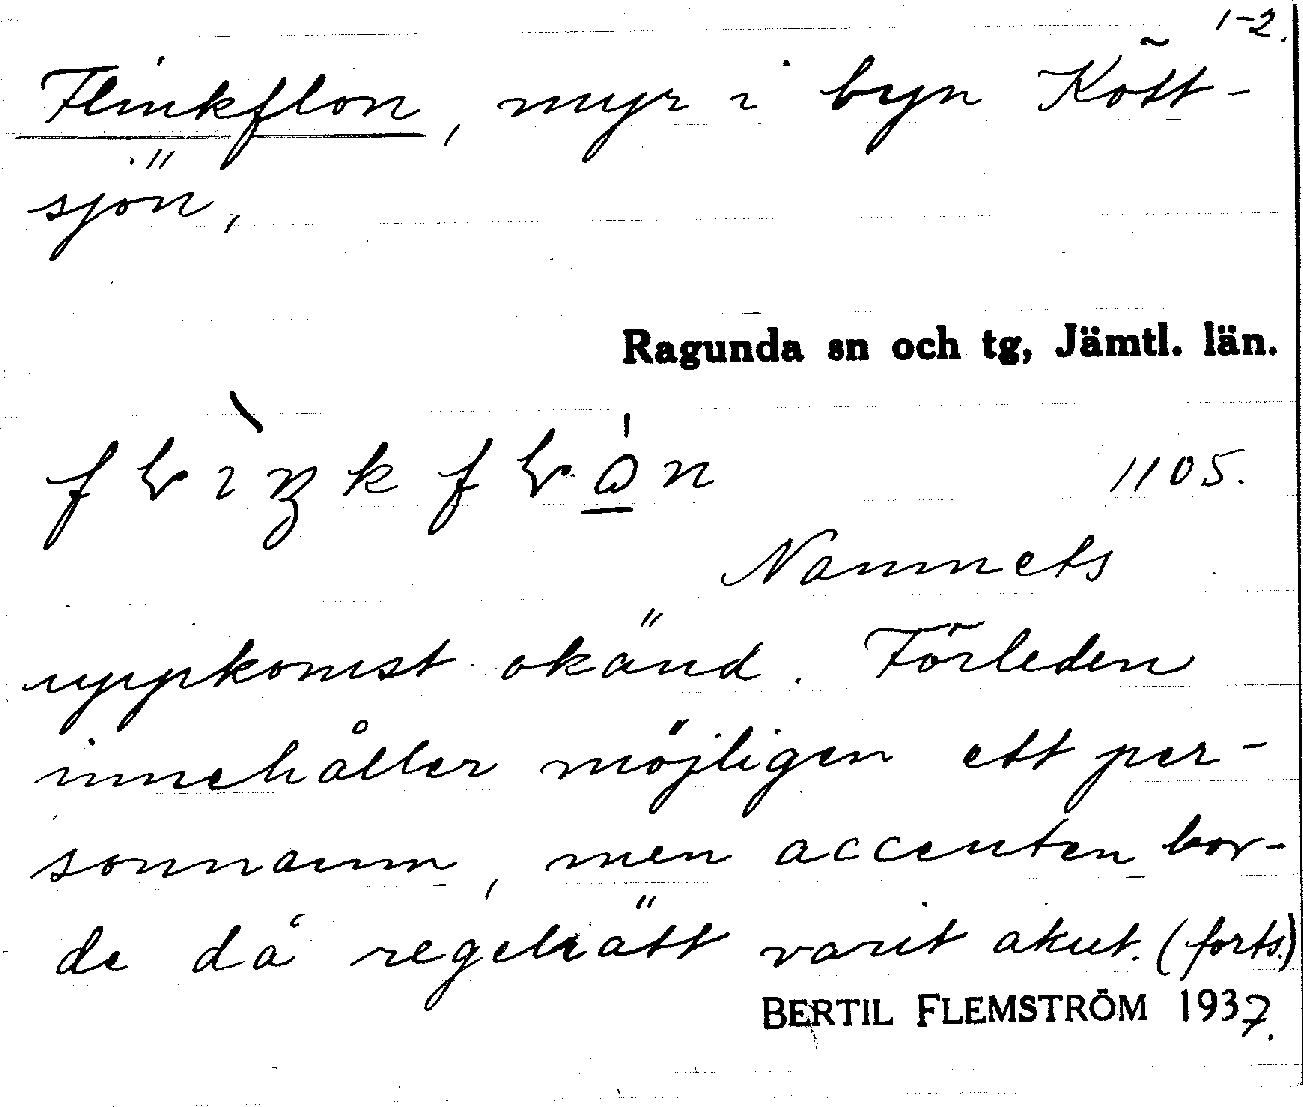 1-2.
Flinkflon, myr i byn Kött-
sjön,
Ragunda sn och tg, Jämtl. län.
1105.
Namnets
uppkomst okänd. Förleden
innehåller möjligen ett per-
sonnamn, men accenten bor-
de då regelrätt varit akut. (forts.)
BERTIL FLEMSTRÖM 1937.